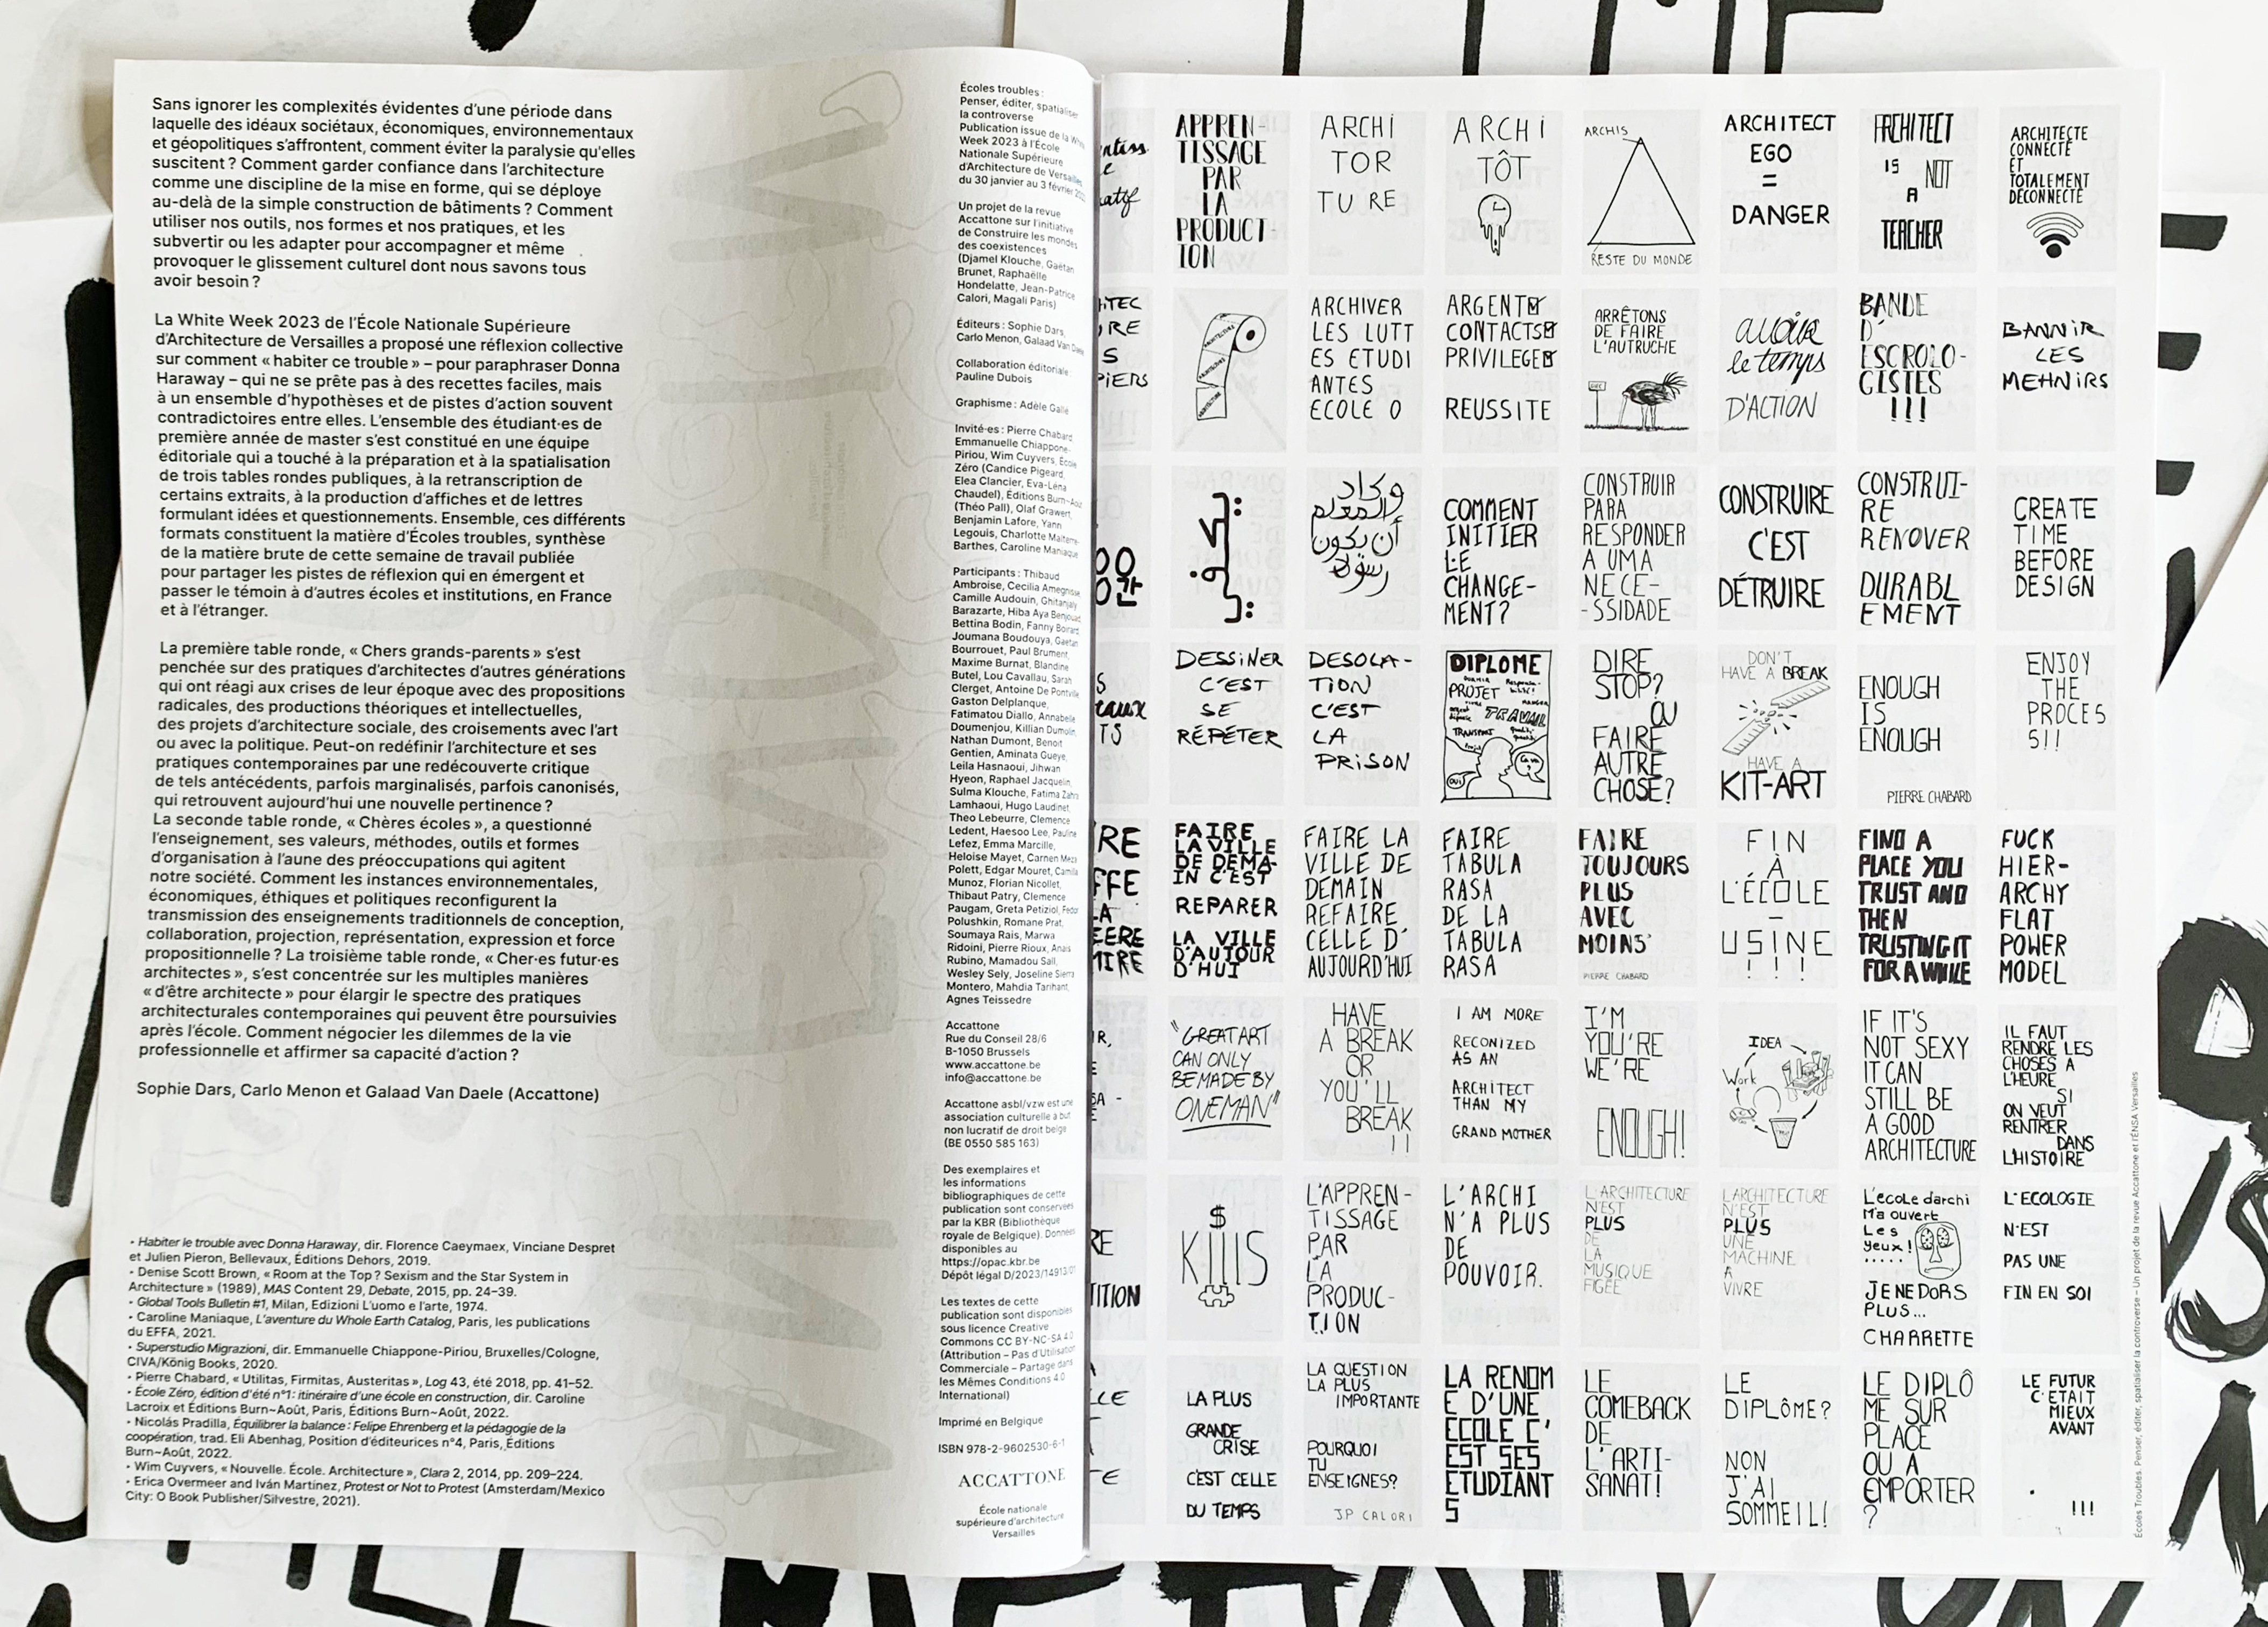 Sans ignorer les complexités évidentes d'une période dans
laquelle des idéaux sociétaux, économiques, environnementaux
et géopolitiques s'affrontent, comment éviter la paralysie qu'elles
suscitent ? Comment garder confiance dans l'architecture
comme une discipline de la mise en forme, qui se déploye
au-delà de la simple construction de bâtiments ? Comment
utiliser nos outils, nos formes et nos pratiques, et les
subvertir ou les adapter pour accompagner et même
provoquer le glissement culturel dont nous savons tous
avoir besoin ?
La White Week 2023 de l'École Nationale Supérieure
d'Architecture de Versailles a proposé une réflexion collective
sur comment « habiter ce trouble » – pour paraphraser Donna
Haraway – qui ne se prête pas à des recettes faciles, mais
à un ensemble d'hypothèses et de pistes d'action souvent
contradictoires entre elles. L'ensemble des étudiant·es de
première année de master s'est constitué en une équipe
éditoriale qui a touché à la préparation et à la spatialisation
de trois tables rondes publiques, à la retranscription de
certains extraits, à la production d'affiches et de lettres
formulant idées et questionnements. Ensemble, ces différents
formats constituent la matière d'Écoles troubles, synthèse
de la matière brute de cette semaine de travail publiée
pour partager les pistes de réflexion qui en émergent et
passer le témoin à d'autres écoles et institutions, en France
et à l'étranger.
La première table ronde, « Chers grands-parents » s'est
penchée sur des pratiques d'architectes d'autres générations
qui ont réagi aux crises de leur époque avec des propositions
radicales, des productions théoriques et intellectuelles,
des projets d'architecture sociale, des croisements avec l'art
ou avec la politique. Peut-on redéfinir l'architecture et ses
pratiques contemporaines par une redécouverte critique
de tels antécédents, parfois marginalisés, parfois canonisés,
qui retrouvent aujourd'hui une nouvelle pertinence ?
La seconde table ronde, « Chères écoles », a questionné
l'enseignement, ses valeurs, méthodes, outils et formes
d'organisation à l'aune des préoccupations qui agitent
notre société. Comment les instances environnementales,
économiques, éthiques et politiques reconfigurent la
transmission des enseignements traditionnels de conception,
collaboration, projection, représentation, expression et force
propositionnelle ? La troisième table ronde, « Cher·es futur·es
architectes », s'est concentrée sur les multiples manières
« d'être architecte » pour élargir le spectre des pratiques
architecturales contemporaines qui peuvent être poursuivies
après l'école. Comment négocier les dilemmes de la vie
professionnelle et affirmer sa capacité d'action ?
Sophie Dars, Carlo Menon et Galaad Van Daele (Accattone)
• Habiter le trouble avec Donna Haraway, dir. Florence Caeymaex, Vinciane Despret
et Julien Pieron, Bellevaux, Éditions Dehors, 2019.
• Denise Scott Brown, « Room at the Top ? Sexism and the Star System in
Architecture » (1989), MAS Content 29, Debate, 2015, pp. 24–39.
• Global Tools Bulletin #1, Milan, Edizioni L'uomo e l'arte, 1974.
• Caroline Maniaque, L'aventure du Whole Earth Catalog, Paris, les publications
du EFFA, 2021.
• Superstudio Migrazioni, dir. Emmanuelle Chiappone-Piriou, Bruxelles/Cologne,
CIVA/König Books, 2020.
• Pierre Chabard, « Utilitas, Firmitas, Austeritas », Log 43, été 2018, pp. 41–52.
• École Zéro, édition d'été n°1 : itinéraire d'une école en construction, dir. Caroline
Lacroix et Éditions Burn~Août, Paris, Éditions Burn~Août, 2022.
• Nicolás Pradilla, Équilibrer la balance : Felipe Ehrenberg et la pédagogie de la
coopération, trad. Eli Abenhag, Position d'éditeurices n°4, Paris, Éditions
Burn~Août, 2022.
• Wim Cuyvers, « Nouvelle. École. Architecture », Clara 2, 2014, pp. 209–224.
• Erica Overmeer and Iván Martínez, Protest or Not to Protest (Amsterdam/Mexico
City: O Book Publisher/Silvestre, 2021).
Écoles troubles :
Penser, éditer, spatialiser
la controverse
Publication issue de la White
Week 2023 à l'École
Nationale Supérieure
d'Architecture de Versailles
du 30 janvier au 3 février
Un projet de la revue
Accattone sur l'initiative
de Construire les mondes
des coexistences
(Djamel Klouche, Gaëtan
Brunet, Raphaëlle
Hondelatte, Jean-Patrice
Calori, Magali Paris)
Éditeurs : Sophie Dars,
Carlo Menon, Galaad Van
Collaboration éditoriale
Pauline Dubois
Graphisme : Adèle
Invité·es : Pierre Chabard,
Emmanuelle Chiappone-
Piriou, Wim Cuyvers, École
Zéro (Candice Pigeard,
Elea Clancier, Eva-Léna
Chaudel), Éditions Burn~Août
(Théo Pall), Olaf Grawert,
Benjamin Lafore, Yann
Legouis, Charlotte Malterre-
Barthes, Caroline Maniaque
Participants : Thibaud
Ambroise, Cecilia
Camille Audouin,
Barazarte, Hiba Aya
Bettina Bodin, Fanny
Joumana Boudouya, Gaetan
Bourrouet, Paul Brument,
Maxime Burnat, Blandine
Butel, Lou Cavallau, Sarah
Clerget, Antoine De
Gaston Delplanque,
Fatimatou Diallo, Annabelle
Doumenjou, Killian
Nathan Dumont, Benoit
Gentien, Aminata Gueye,
Leila Hasnaoui, Jihwan
Hyeon, Raphael Jacquelin,
Sulma Klouche, Fatima Zahra
Lamhaoui, Hugo Laudinet,
Theo Lebeurre, Clemence
Ledent, Haesoo Lee, Pauline
Lefez, Emma Marcille,
Heloise Mayet, Carmen
Polett, Edgar Mouret, Camila
Munoz, Florian Nicollet,
Thibaut Patry, Clemence
Paugam, Greta Petiziol,
Polushkin, Romane Prat,
Soumaya Rais, Marwa
Ridoini, Pierre Rioux, Anais
Rubino, Mamadou Sall,
Wesley Sely, Joseline Sierra
Montero, Mahdia Tarihant,
Agnes Teissedre
Accattone
Rue du Conseil 28/6
B-1050 Brussels
www.accattone.be
info@accattone.be
Accattone asbl/vzw est une
association culturelle à but
non lucratif de droit belge
(BE 0550 585 163)
Des exemplaires et
les informations
bibliographiques de cette
publication sont conservées
par la KBR (Bibliothèque
royale de Belgique). Données
disponibles au
https://opac.kbr.be
Dépôt légal
Les textes de cette
publication sont disponibles
sous licence Creative
Commons CC BY-NC-SA 4.0
(Attribution – Pas d'Utilisation
Commerciale – Partage dans
les Mêmes Conditions 4.0
International)
Imprimé en Belgique
ISBN 978-2-9602530-6-1
ACCATTONE
École nationale
supérieure d'architecture
Versailles
APPREN-
TISSAGE
PAR
LA
PRODUCT-
ION
ARCHI
TOR
TU RE
ARCHI
TÔT
ARCHIS
RESTE DU MONDE
ARCHITECT
EGO
=
DANGER
ARCHITECT
IS NOT
A
TEACHER
ARCHITECTE
CONNECTÉ
ET
TOTALEMENT
DÉCONNECTÉ
ARCHIVER
LES LUTT
ES ETUDI
ANTES
ECOLE 0
ARGENT
CONTACTS
PRIVILEGE
REUSSITE
ARRÊTONS
DE FAIRE
L'AUTRUCHE
avoir
le temps
D'ACTION
BANDE
D'
ESCROLO-
GISTES
!!!
BANNIR
LES
MEHNIRS
وكاد
المعلم
أن يكون
رسولا
COMMENT
INITIER
LE
CHANGE-
MENT?
CONSTRUIR
PARA
RESPONDER
A UMA
NECE-
-SSIDADE
CONSTRUIRE
C'EST
DÉTRUIRE
CONSTRUI-
RE
RENOVER
DURABL
EMENT
CREATE
TIME
BEFORE
DESIGN
DESSINER
C'EST
SE
RÉPÉTER
DESOLA-
TION
C'EST
LA
PRISON
DIPLOME
PROJET
TRAVAIL
TRANSPORT
DIRE
STOP?
OU
FAIRE
AUTRE
CHOSE?
DON'T
HAVE A BREAK
HAVE A
KIT-ART
ENOUGH
IS
ENOUGH
PIERRE CHABARD
ENJOY
THE
PROCES
S!!
FAIRE
LA VILLE
DE DEMA-
IN C'EST
REPARER
LA VILLE
D'AUJOUR
D'HUI
FAIRE LA
VILLE DE
DEMAIN
REFAIRE
CELLE D'
AUJOURD'HUI
FAIRE
TABULA
RASA
DE LA
TABULA
RASA
FAIRE
TOUJOURS
PLUS
AVEC
MOINS
PIERRE CHABARD
FIN
À
L'ÉCOLE
-
USINE
!!!
FIND A
PLACE YOU
TRUST AND
THEN
TRUSTING IT
FOR A WHILE
FUCK
HIER-
ARCHY
FLAT
POWER
MODEL
"GREAT ART
CAN ONLY
BE MADE BY
ONE MAN"
HAVE
A BREAK
OR
YOU'LL
BREAK
!!
I AM MORE
RECONIZED
AS AN
ARCHITECT
THAN MY
GRAND MOTHER
I'M
YOU'RE
WE'RE
ENOUGH!
IDEA
Work
IF IT'S
NOT SEXY
IT CAN
STILL BE
A GOOD
ARCHITECTURE
IL FAUT
RENDRE LES
CHOSES A
L'HEURE
SI
ON VEUT
RENTRER
DANS
L'HISTOIRE
$
KIllS
L'APPREN-
TISSAGE
PAR
LA
PRODUC-
TION
L'ARCHI
N'A PLUS
DE
POUVOIR.
L'ARCHITECTURE
N'EST
PLUS
DE
LA
MUSIQUE
FIGÉE
L'ARCHITECTURE
N'EST
PLUS
UNE
MACHINE
A
VIVRE
L'ecole darchi
M'a ouvert
Les
yeux!
.....
JE NE DORS
PLUS...
CHARRETTE
L'ECOLOGIE
N'EST
PAS UNE
FIN EN SOI
LA PLUS
GRANDE
CRISE
C'EST CELLE
DU TEMPS
LA QUESTION
LA PLUS
IMPORTANTE
POURQUOI
TU
ENSEIGNES?
JP CALORI
LA RENOM
E D'UNE
ECOLE C'
EST SES
ETUDIANT
S
LE
COMEBACK
DE
L'ARTI-
SANAT!
LE
DIPLÔME?
NON
J'AI
SOMMEIL!
LE DIPLÔ
ME SUR
PLACE
OU A
EMPORTER
?
LE FUTUR
C'ETAIT
MIEUX
AVANT
!!!
Écoles Troubles. Penser, éditer, spatialiser la controverse – Un projet de la revue Accattone et l'ÉNSA Versailles